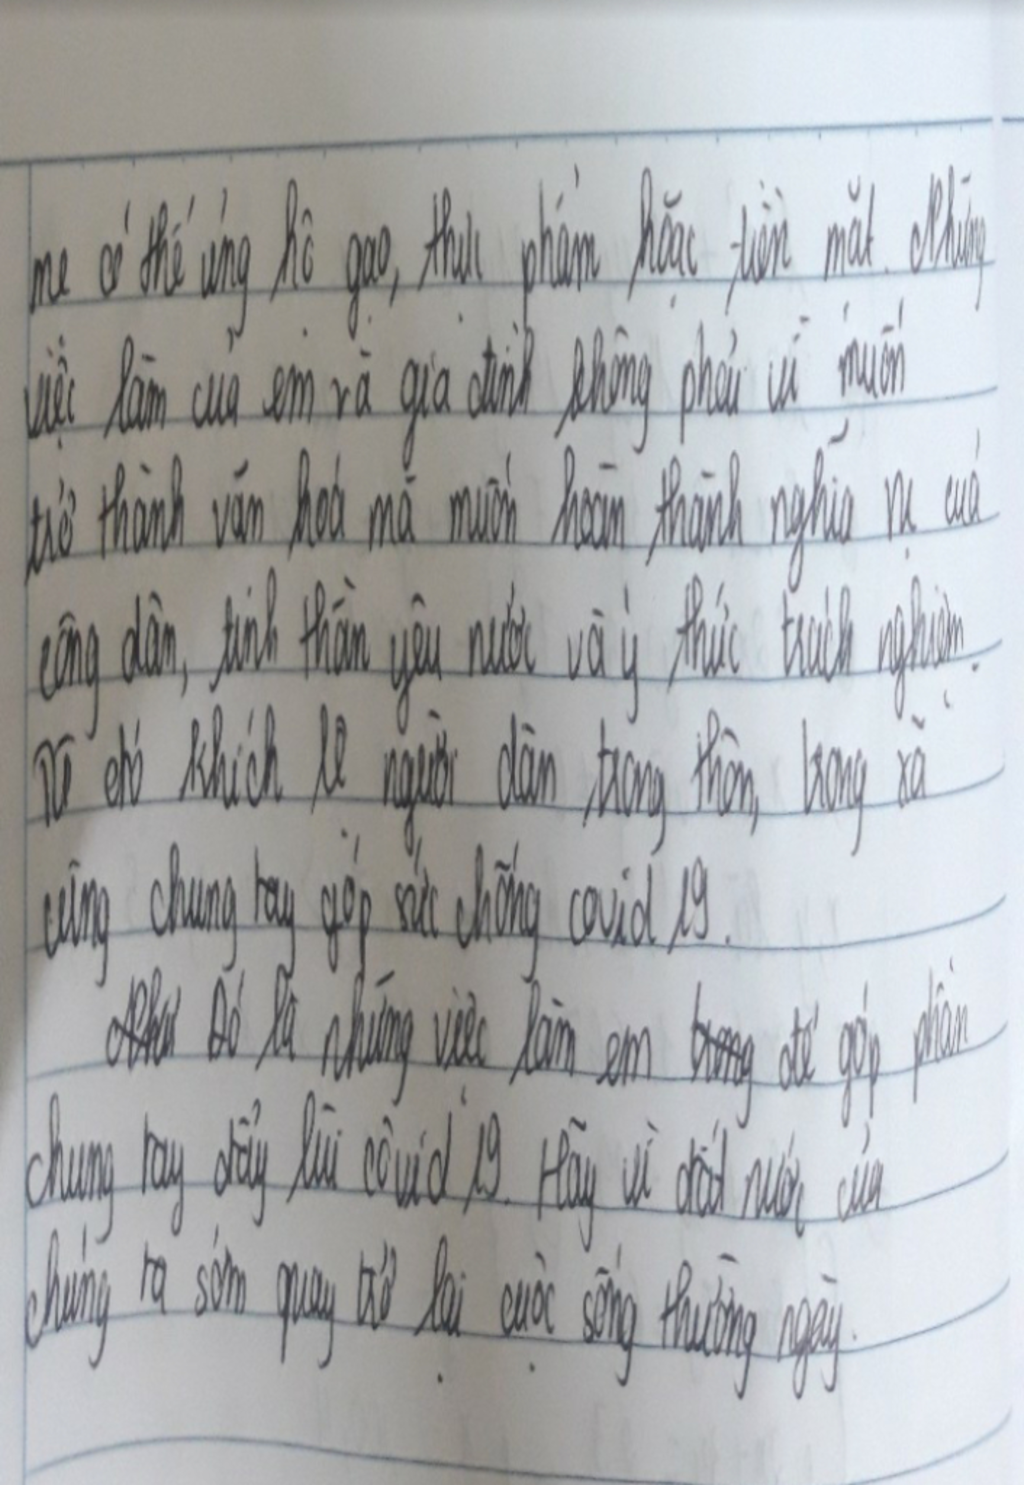 mẹ có thể ủng hộ gạo, thực phẩm hoặc tiền mặt. Những
việc làm của em và gia đình không phải vì muốn
trở thành văn hoá mà muốn hoàn thành nghĩa vụ của
công dân, tinh thần yêu nước và ý thức trách nghiệm.
Từ đó khích lệ người dân trong thôn, trong xã
cùng chung tay góp sức chống covid 19.
Đó là những việc làm em để góp phần
chung tay đẩy lùi côvid 19. Hãy vì đất nước của
chúng ta sớm quay trở lại cuộc sống thường ngày.